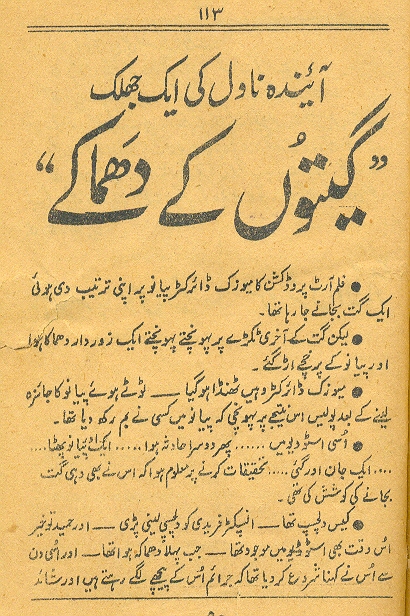 ۱۱۳
آئیندہ ناول کی ایک جھلک
”گیتوں کے دھماکے“
● فلم آرٹ پروڈکشن کا میوزک ڈائرکٹر پیانو پر اپنی ترتیب دی ہوئی
ایک گت بجانے جا رہا تھا۔
● لیکن گت کے آخری ٹکڑے پر پہونچتے پہونچتے ایک زوردار دھماکا ہوا
اور پیانو کے پرخچے اڑ گئے۔
● میوزک ڈائرکٹر وہیں ٹھنڈا ہو گیا — ٹوٹے ہوئے پیانو کا جائزہ
لینے کے بعد پولیس اس نتیجے پر پہونچی کہ پیانو میں کسی نے بم رکھ دیا تھا۔
● اُسی اسٹوڈیو میں ...... پھر دوسرا حادثہ ہوا ..... ایک اور پیانو پھٹا....
.... ایک جان اور گئی .... تحقیقات کرنے پر معلوم ہوا کہ اس نے بھی وہی گت
بجانے کی کوشش کی تھی۔
● کیس دلچسپ تھا — انسپکٹر فریدی کو دلچسپی لینی پڑی — اور حمید تو خیر
اُس وقت بھی اسٹوڈیو میں موجود تھا — جب پہلا دھماکہ ہوا تھا — اور اسی دن
سے اُس نے کہنا شروع کر دیا تھا کہ جرائم اُس کے پیچھے لگے رہتے ہیں اور شائد